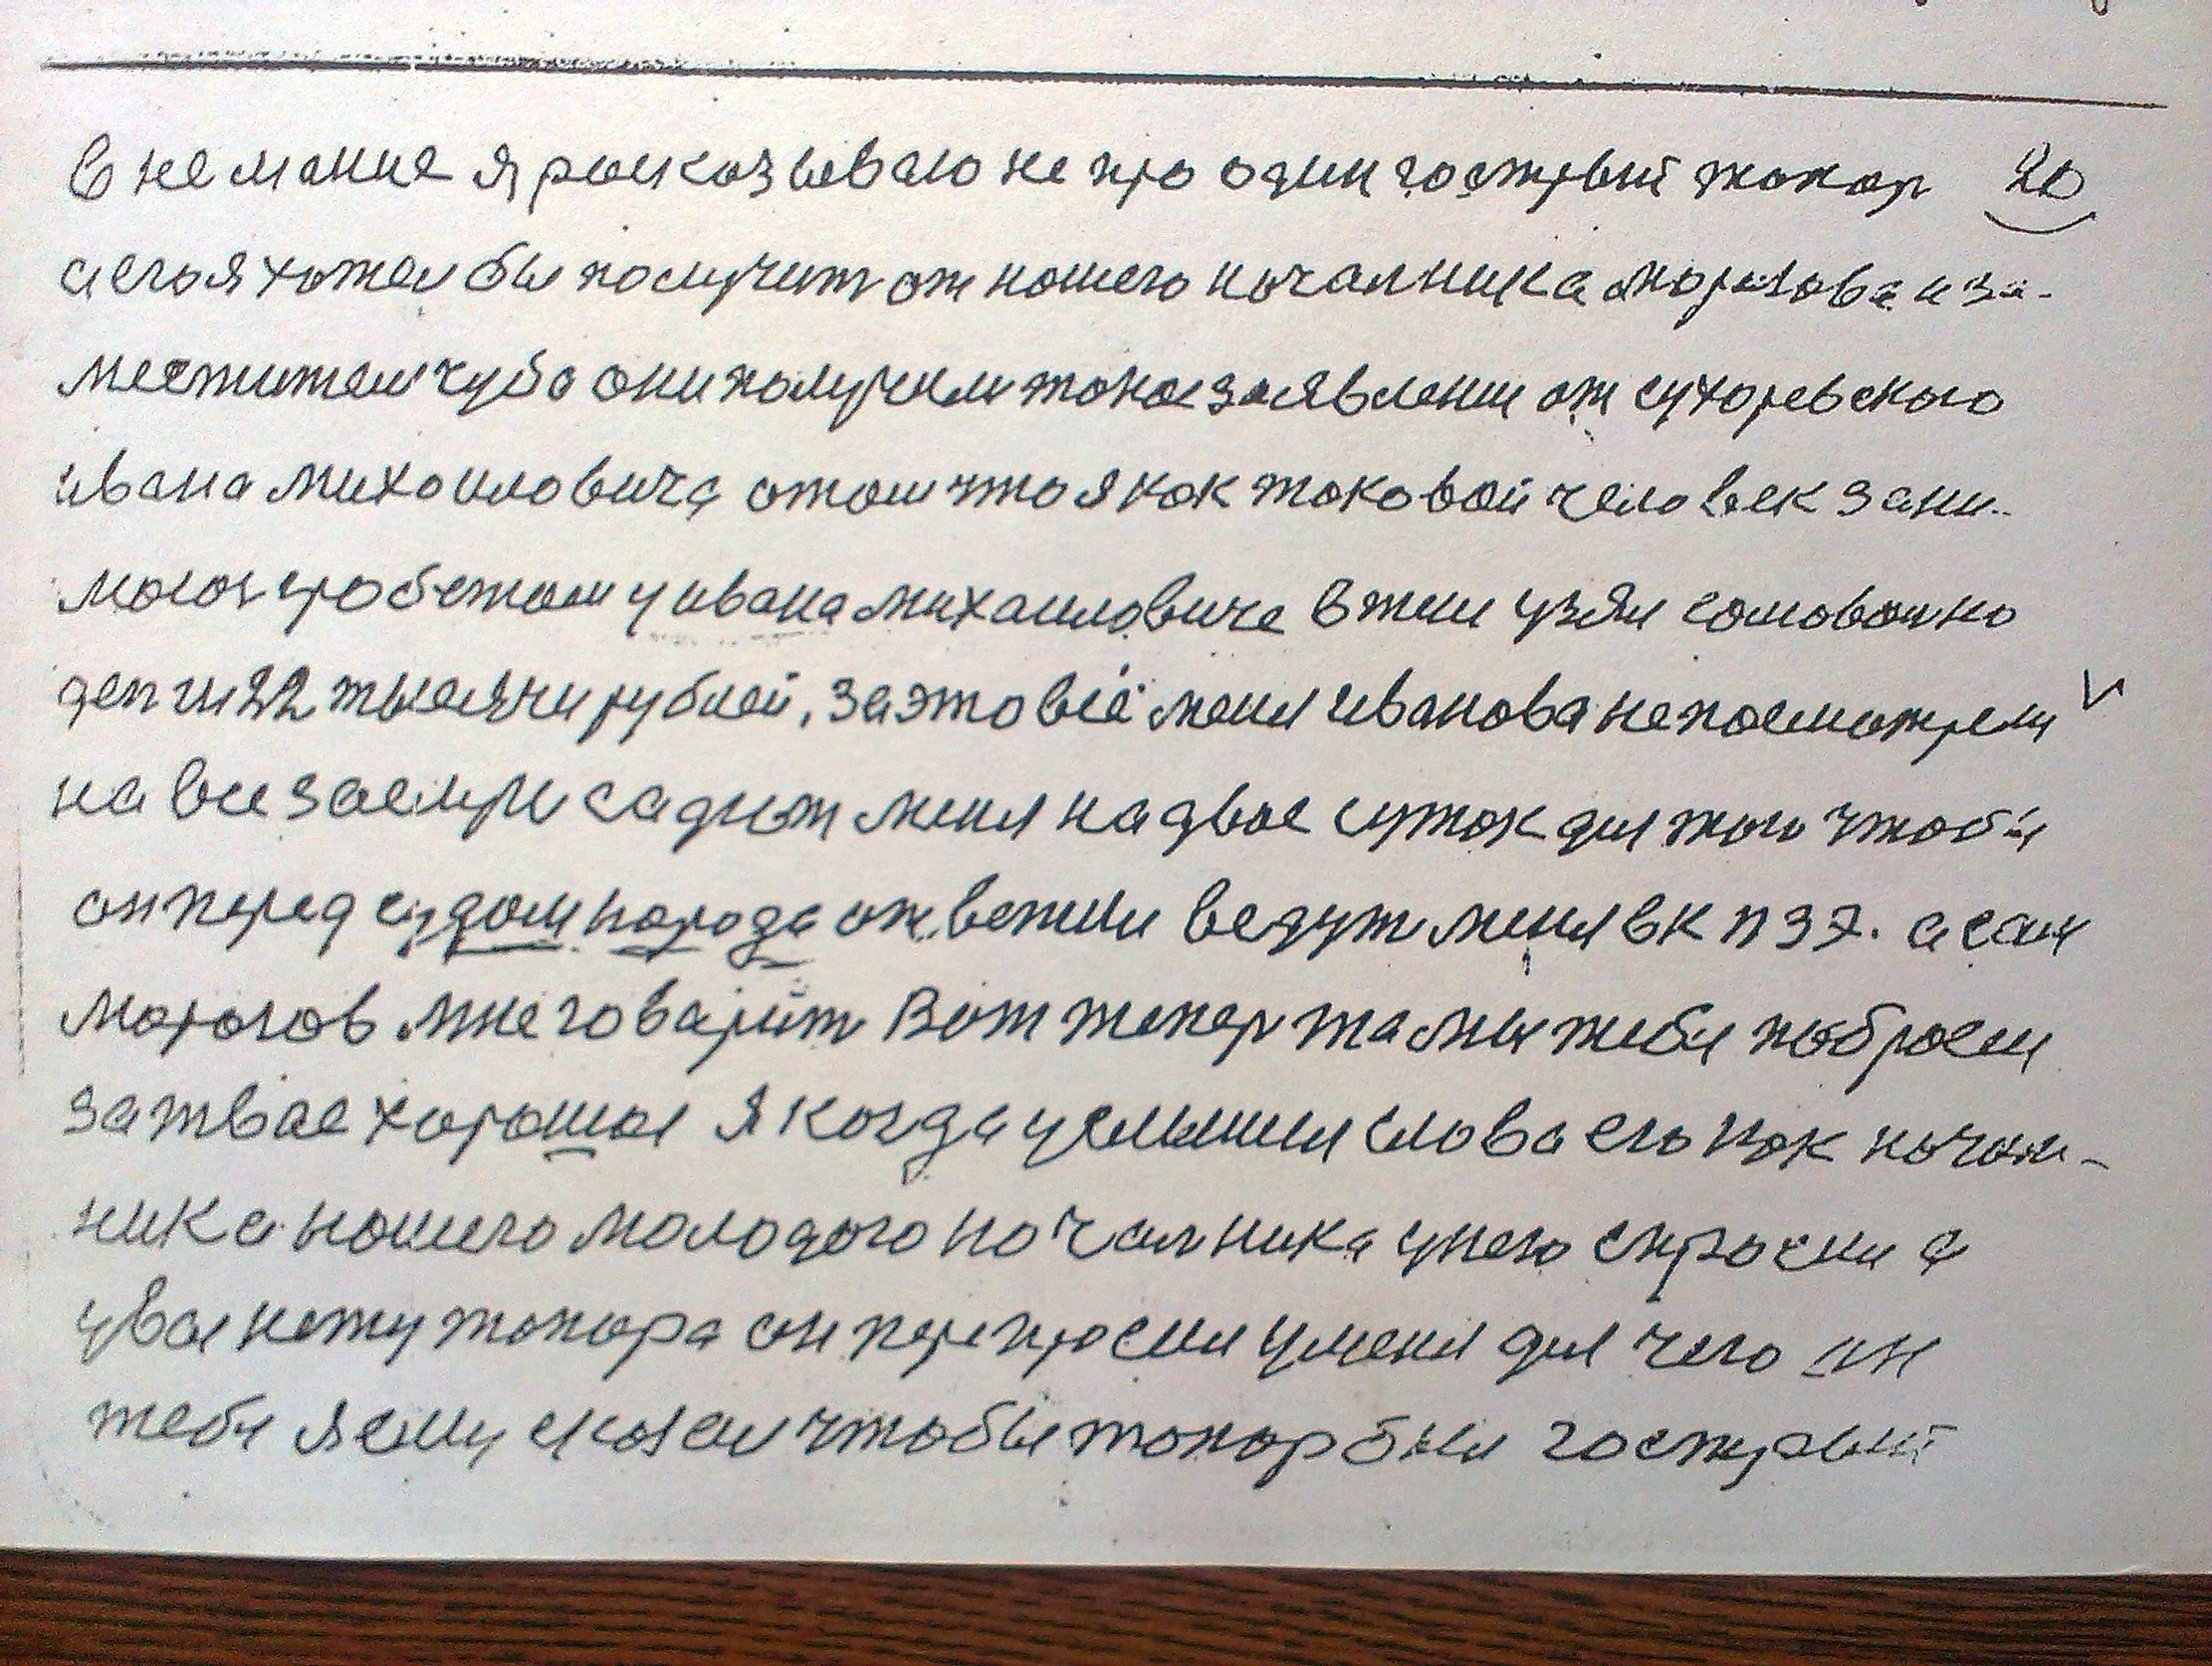 внемание я роисказываю не про один гострый топор 20
а его я хотел бы получит от ношего началника морозова и за-
меститель чуба они получили токое заявлении от сухоревского
ивана михоиловича отом что я как токовой человек зани-
моюсь гробежом у ивана михаиловиче втит узял сомоволно
денги 22 тысячи рублей, за это всё меня иванова не посмотрели
на все заслуги садют меня на двое суток для того чтобы
он перед судом народа ответил ведут меня в кпзэ. а сам
морозов мне говарит Вот тепер та мы тебя поброем
за твое хорошое я когда услышил слова его как началь-
ника ношего молодого началника унего спросил а
у вас нету топора он перепросил у меня для чего он
тебя я ему сказал чтобы топор был гострый